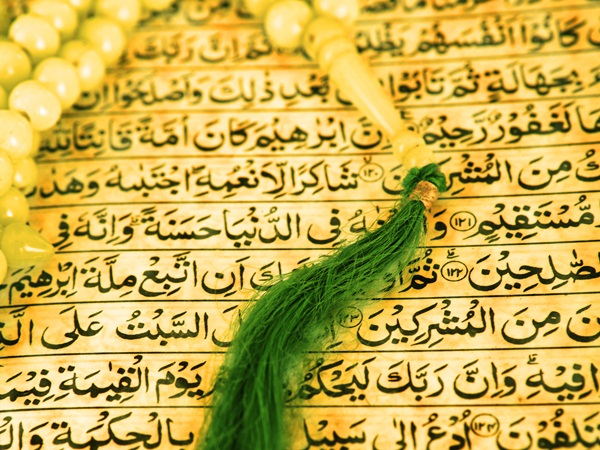 كَانُوْٓا اَنْفُسَهُمْ ثُمَّ اِنَّ رَبَّكَ
بِجَهَالَةٍ ثُمَّ تَابُوْا بَعْدِ ذٰلِكَ وَاَصْلَحُوْٓا اِنَّ
لَغَفُوْرٌ رَّحِيْمٌ اِنَّ اِبْرٰهِيْمَ كَانَ اُمَّةً قَانِتًا لِّلّٰهِ
مِنَ الْمُشْرِكِيْنَ ١٢٠ شَاكِرًا لِّاَنْعُمِهٖ اِجْتَبٰىهُ
مُّسْتَقِيْمٍ ١٢١ فِى الدُّنْيَا حَسَنَةً وَاِنَّهٗ فِى
الصّٰلِحِيْنَ ١٢٢ ثُمَّ اَنِ اتَّبِعْ مِلَّةَ اِبْرٰهِيْمَ
مِنَ الْمُشْرِكِيْنَ ١٢٣ السَّبْتُ عَلَى
فِيْهِ وَاِنَّ رَبَّكَ لَيَحْكُمُ يَوْمَ الْقِيٰمَةِ فِيْمَا
١٢٤ اُدْعُ اِلٰى سَبِيْلِ بِالْحِكْمَةِ